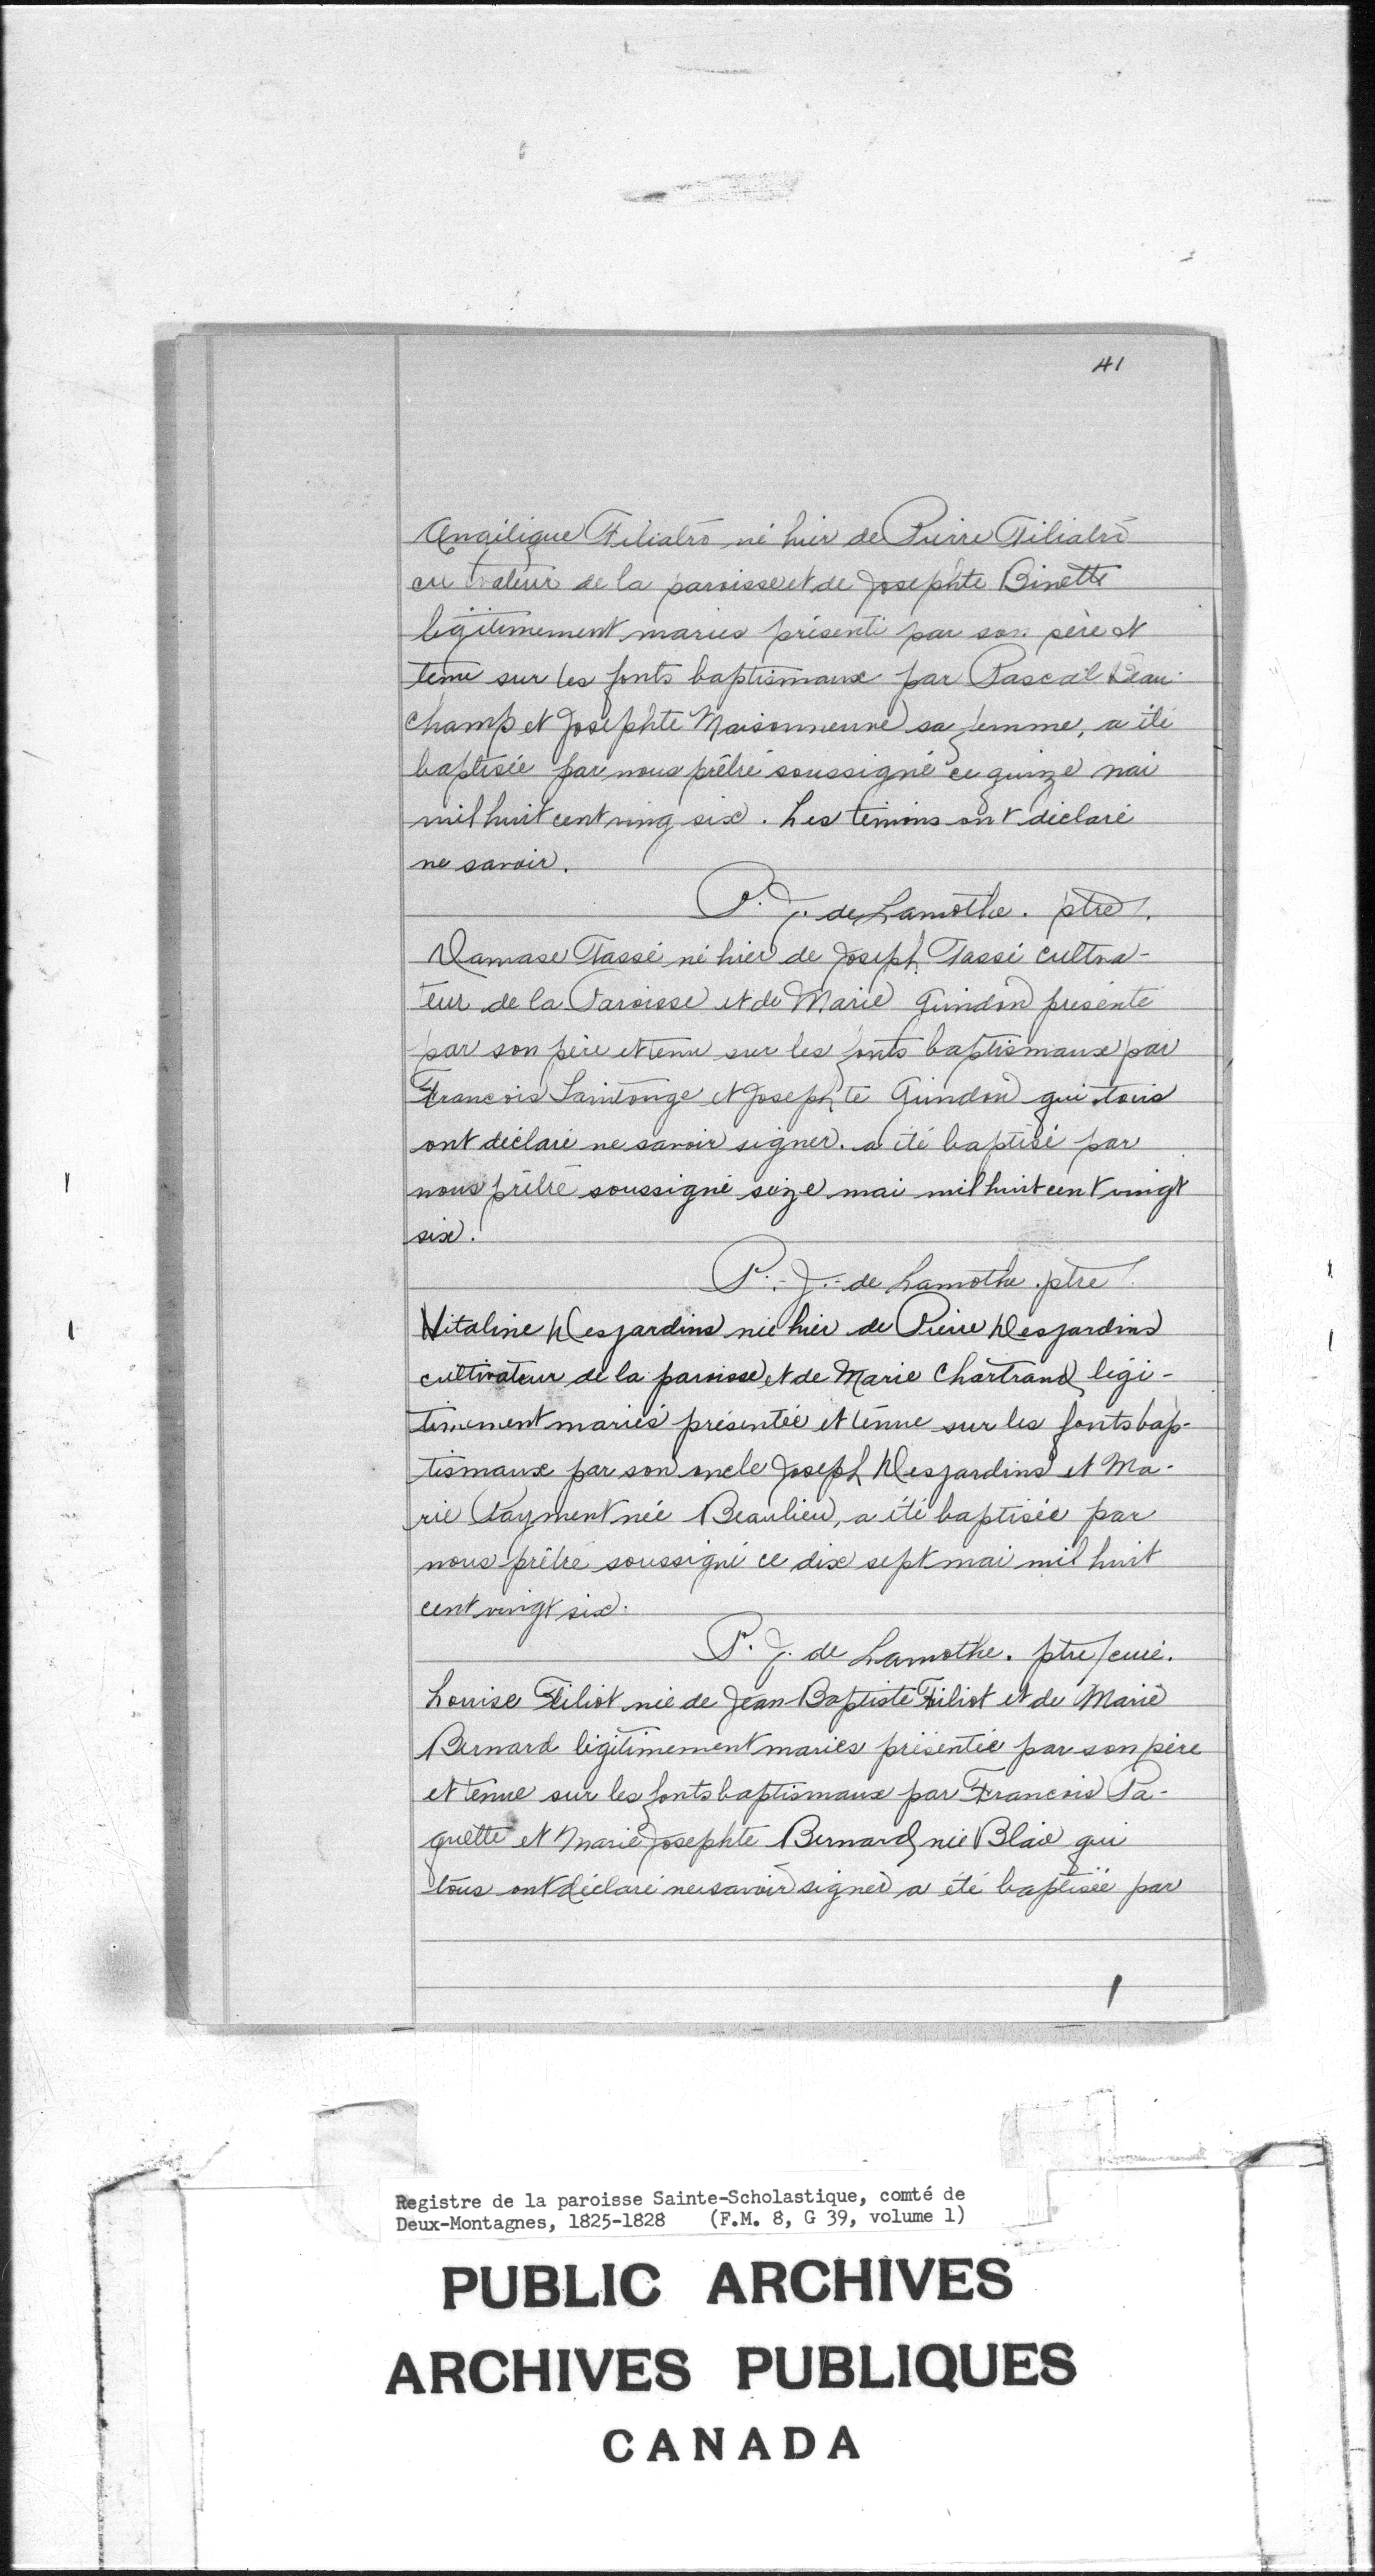 41
Angélique Filiatrô né hier de Pierre Filiatrô
cu tvateur de la paroisse et de Josephte Binette
légitimement mariés présenté par son père et
tenu sur les fonts baptismaux par Pascal Beau-
champ et Josephte Maisonneuve sa femme, a été
baptisée par nous prêtre soussigné ce quinze mai
mil huit cent ving six. Les témoins ont déclaré
ne savoir.
P. J. de Lamothe. ptre.
Damase Tassé né hier de Joseph Tassé cultiva-
teur de la Paroisse et de Marie Guindon présenté
par son père et tenu sur les fonts baptismaux par
Francois Saintonge et Josephte Guindon qui tous
ont déclaré ne savoir signer. a été baptisé par
nous prêtre soussigné seize mai mil huit cent vingt
six.
P.-J.-de Lamothe. ptre
Vitaline Desjardins née hier de Pierre Desjardins
cultivateur de la paroisse et de Marie Chartrand légi-
timement mariés présentée et tenue sur les fonts bap-
tismaux par son oncle Joseph Desjardins et Ma-
rie Payment née Beaulieu, a été baptisée par
nous prêtre soussigné ce dix sept mai mil huit
cent vingt six.
P. J. de Lamothe. ptre/curé.
Louise Filiot née de Jean-Baptiste Filiot et de Marie
Bernard légitimement mariés présentée par son père
et tenue sur les fonts baptismaux par Francois Pa-
quette et Marie Josephte Bernard née Blais qui
tous ont déclaré ne savoir signer a été baptisée par
Registre de la paroisse Sainte-Scholastique, comté de
Deux-Montagnes, 1825-1828 (F.M. 8, G 39, volume 1)
PUBLIC ARCHIVES
ARCHIVES PUBLIQUES
CANADA